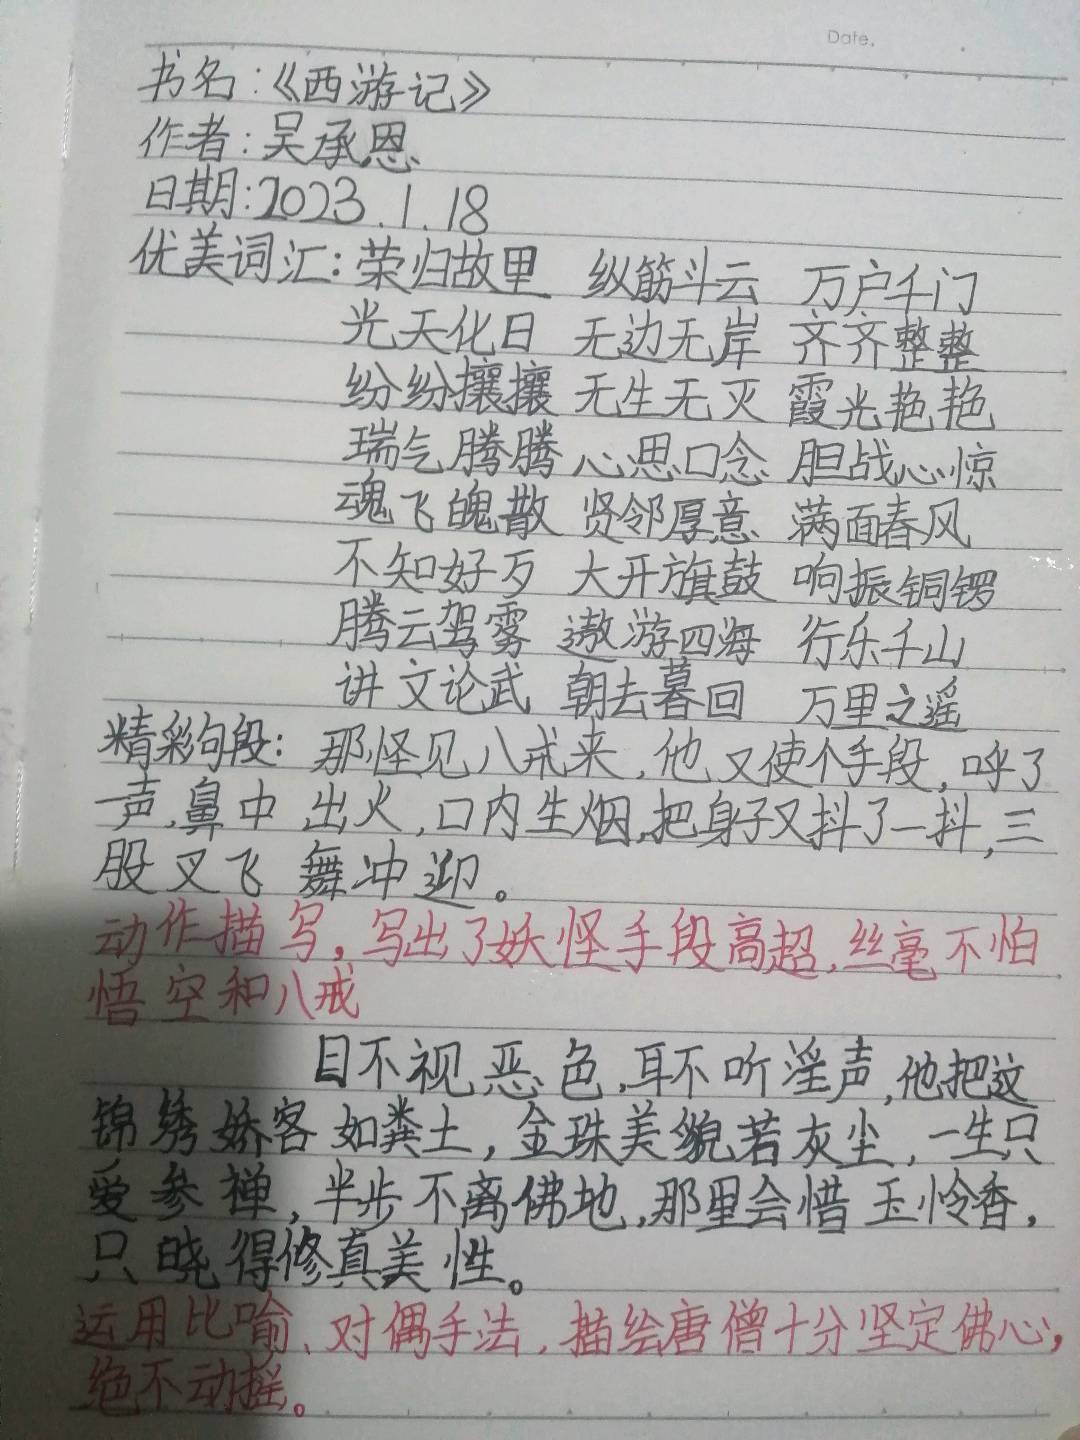 Date.
书名:《西游记》
作者:吴承恩
日期:2023.1.18
优美词汇:荣归故里 纵筋斗云 万户千门
光天化日 无边无岸 齐齐整整
纷纷攘攘 无生无灭 霞光艳艳
瑞气腾腾 心思口念 胆战心惊
魂飞魄散 贤邻厚意 满面春风
不知好歹 大开旗鼓 响振铜锣
腾云驾雾 遨游四海 行乐千山
讲文论武 朝去暮回 万里之遥
精彩句段:那怪见八戒来,他又使个手段,呼了
一声,鼻中出火,口内生烟,把身子又抖了一抖,三
股叉飞舞冲迎。
动作描写,写出了妖怪手段高超,丝毫不怕
悟空和八戒
目不视恶色,耳不听淫声,他把这
锦绣娇客如粪土,金珠美貌若灰尘,一生只
爱参禅,半步不离佛地,那里会惜玉怜香,
只晓得修真美性。
运用比喻、对偶手法,描绘唐僧十分坚定佛心,
绝不动摇。